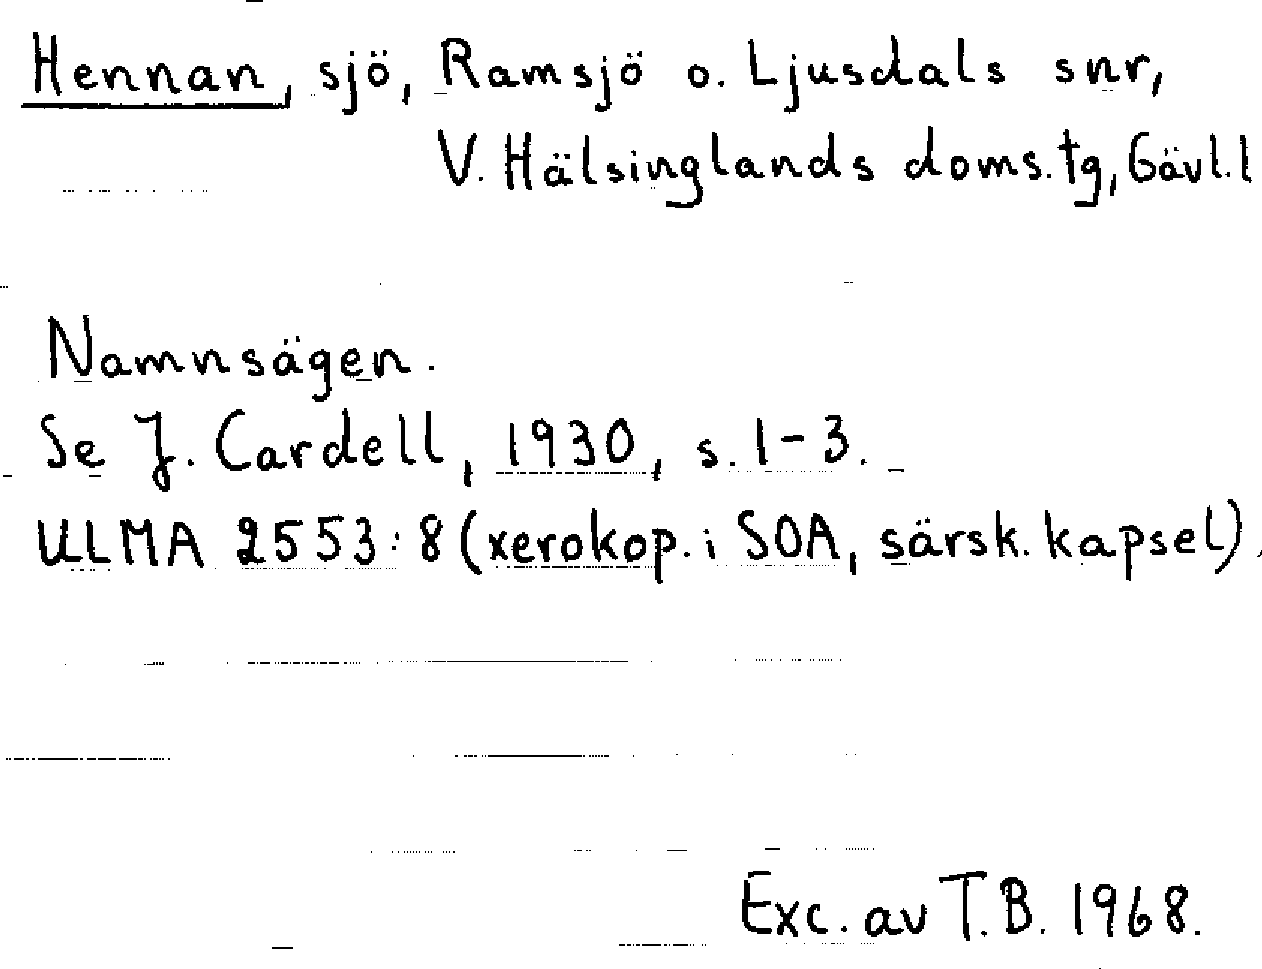 Hennan, sjö, Ramsjö o. Ljusdals snr,
V. Hälsinglands doms.tg, Gävl.l
Namnsägen.
Se J. Cardell, 1930, s. 1-3.
ULMA 2553:8 (xerokop. i SOA, särsk. kapsel).
Exc. av T.B. 1968.